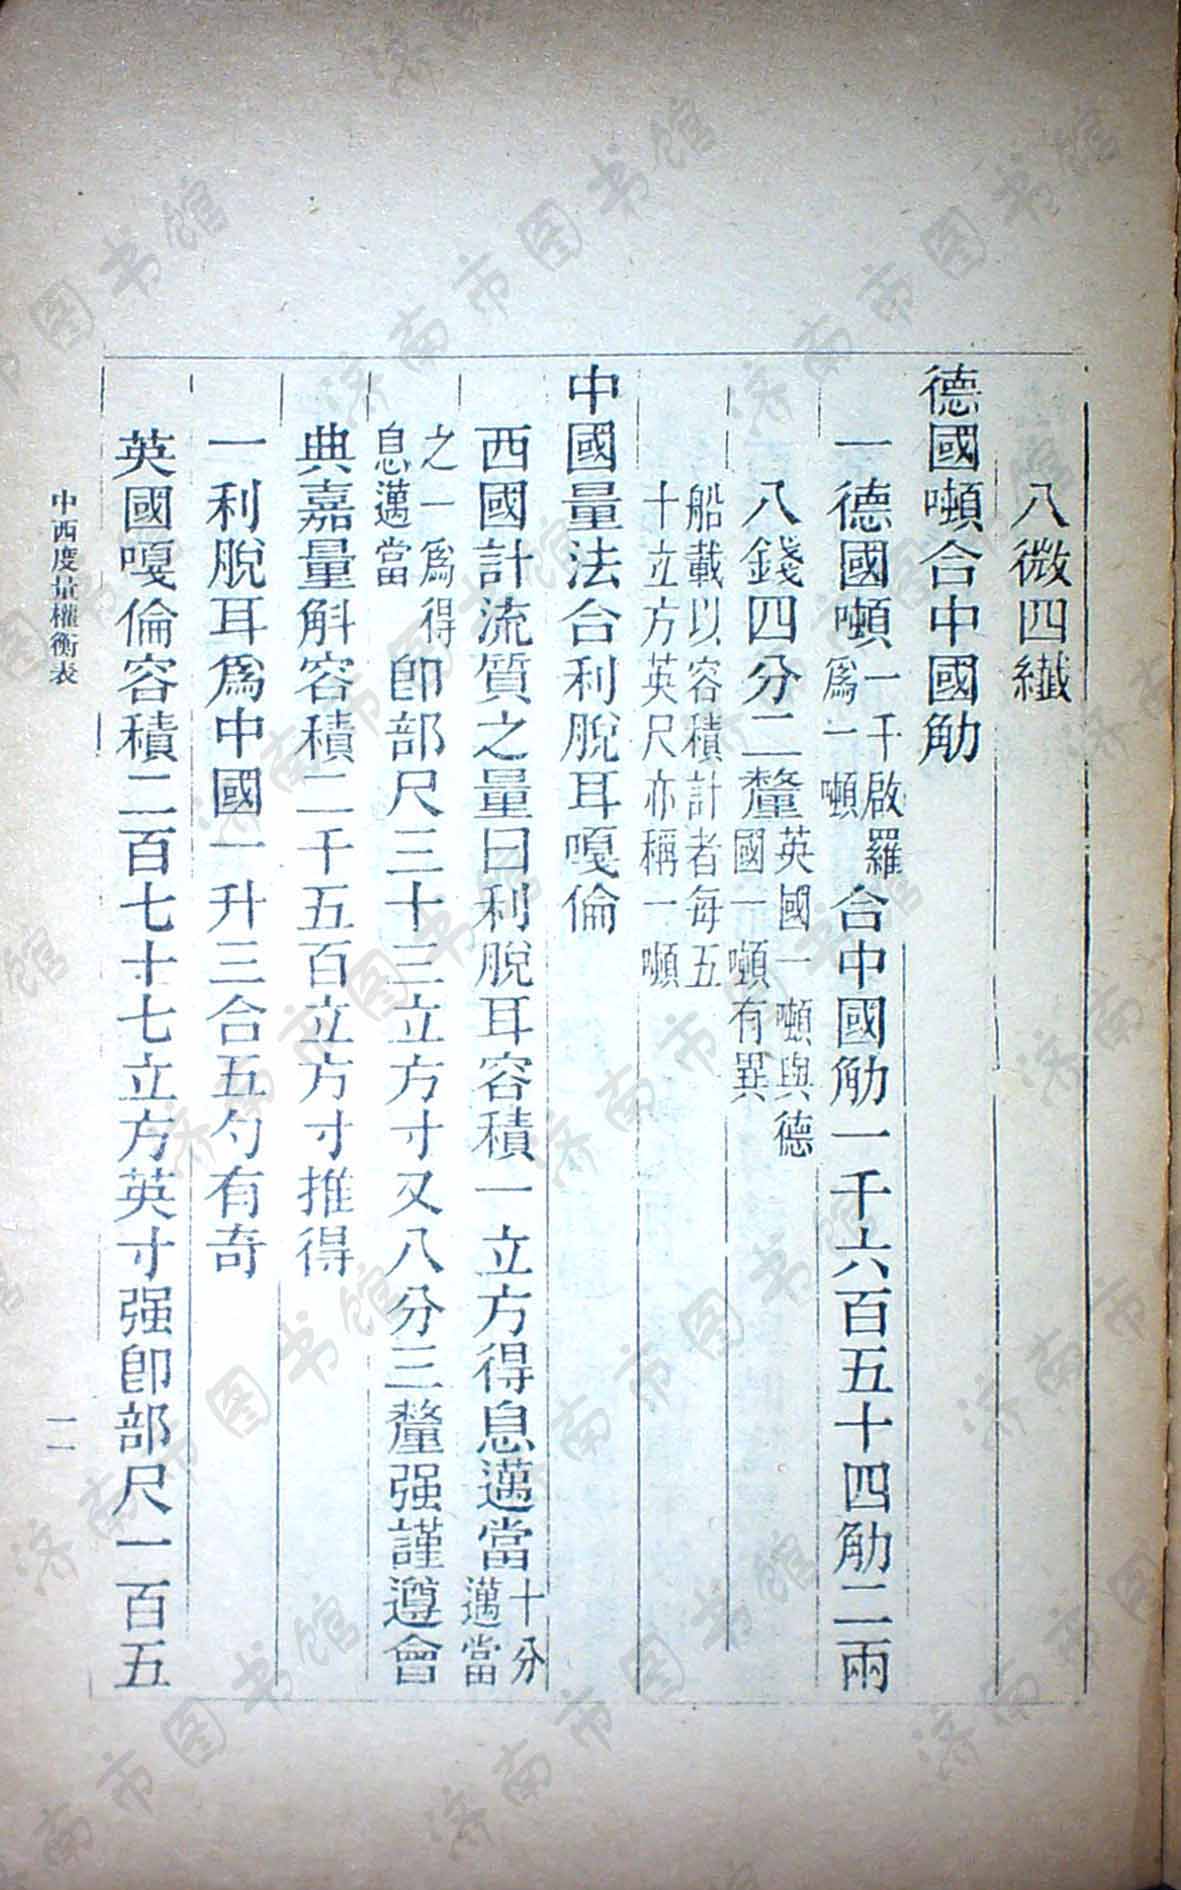 八微四纖
德國噸合中國觔
一德國噸一千啟羅爲一噸合中國觔一千六百五十四觔二兩
八錢四分二釐英國一噸與德國一噸有異
船載以容積計者每五
十立方英尺亦稱一噸
中國量法合利脫耳嘎倫
西國計流質之量曰利脫耳容積一立方得息邁當十分邁當
之一爲得息邁當卽部尺三十三立方寸又八分三釐强謹遵會
典嘉量斛容積二千五百立方寸推得
一利脫耳爲中國一升三合五勺有奇
英國嘎倫容積二百七十七立方英寸强卽部尺一百五
中西度量權衡表
一一
济南市图书馆